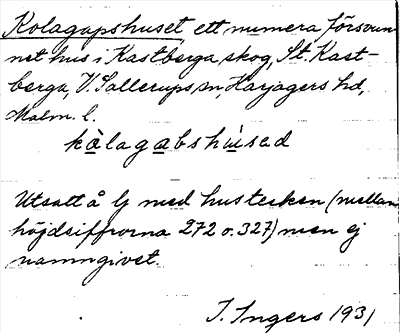 Kolagapshuset ett numera försvun-
net hus i Kastberga skog, St. Kast-
berga, V. Sallerups sn, Harjagers hd,
Malm. l.
kàlagabshùsad
Utsatt å Gj med hustecken (mellan
höjdsiffrorna 272 o. 327) men ej
namngivet.
I. Ingers 1931